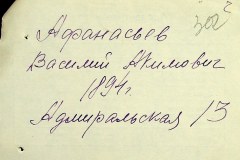 Афанасьев
Василий Акимович
1894г.
Адмиральская 13